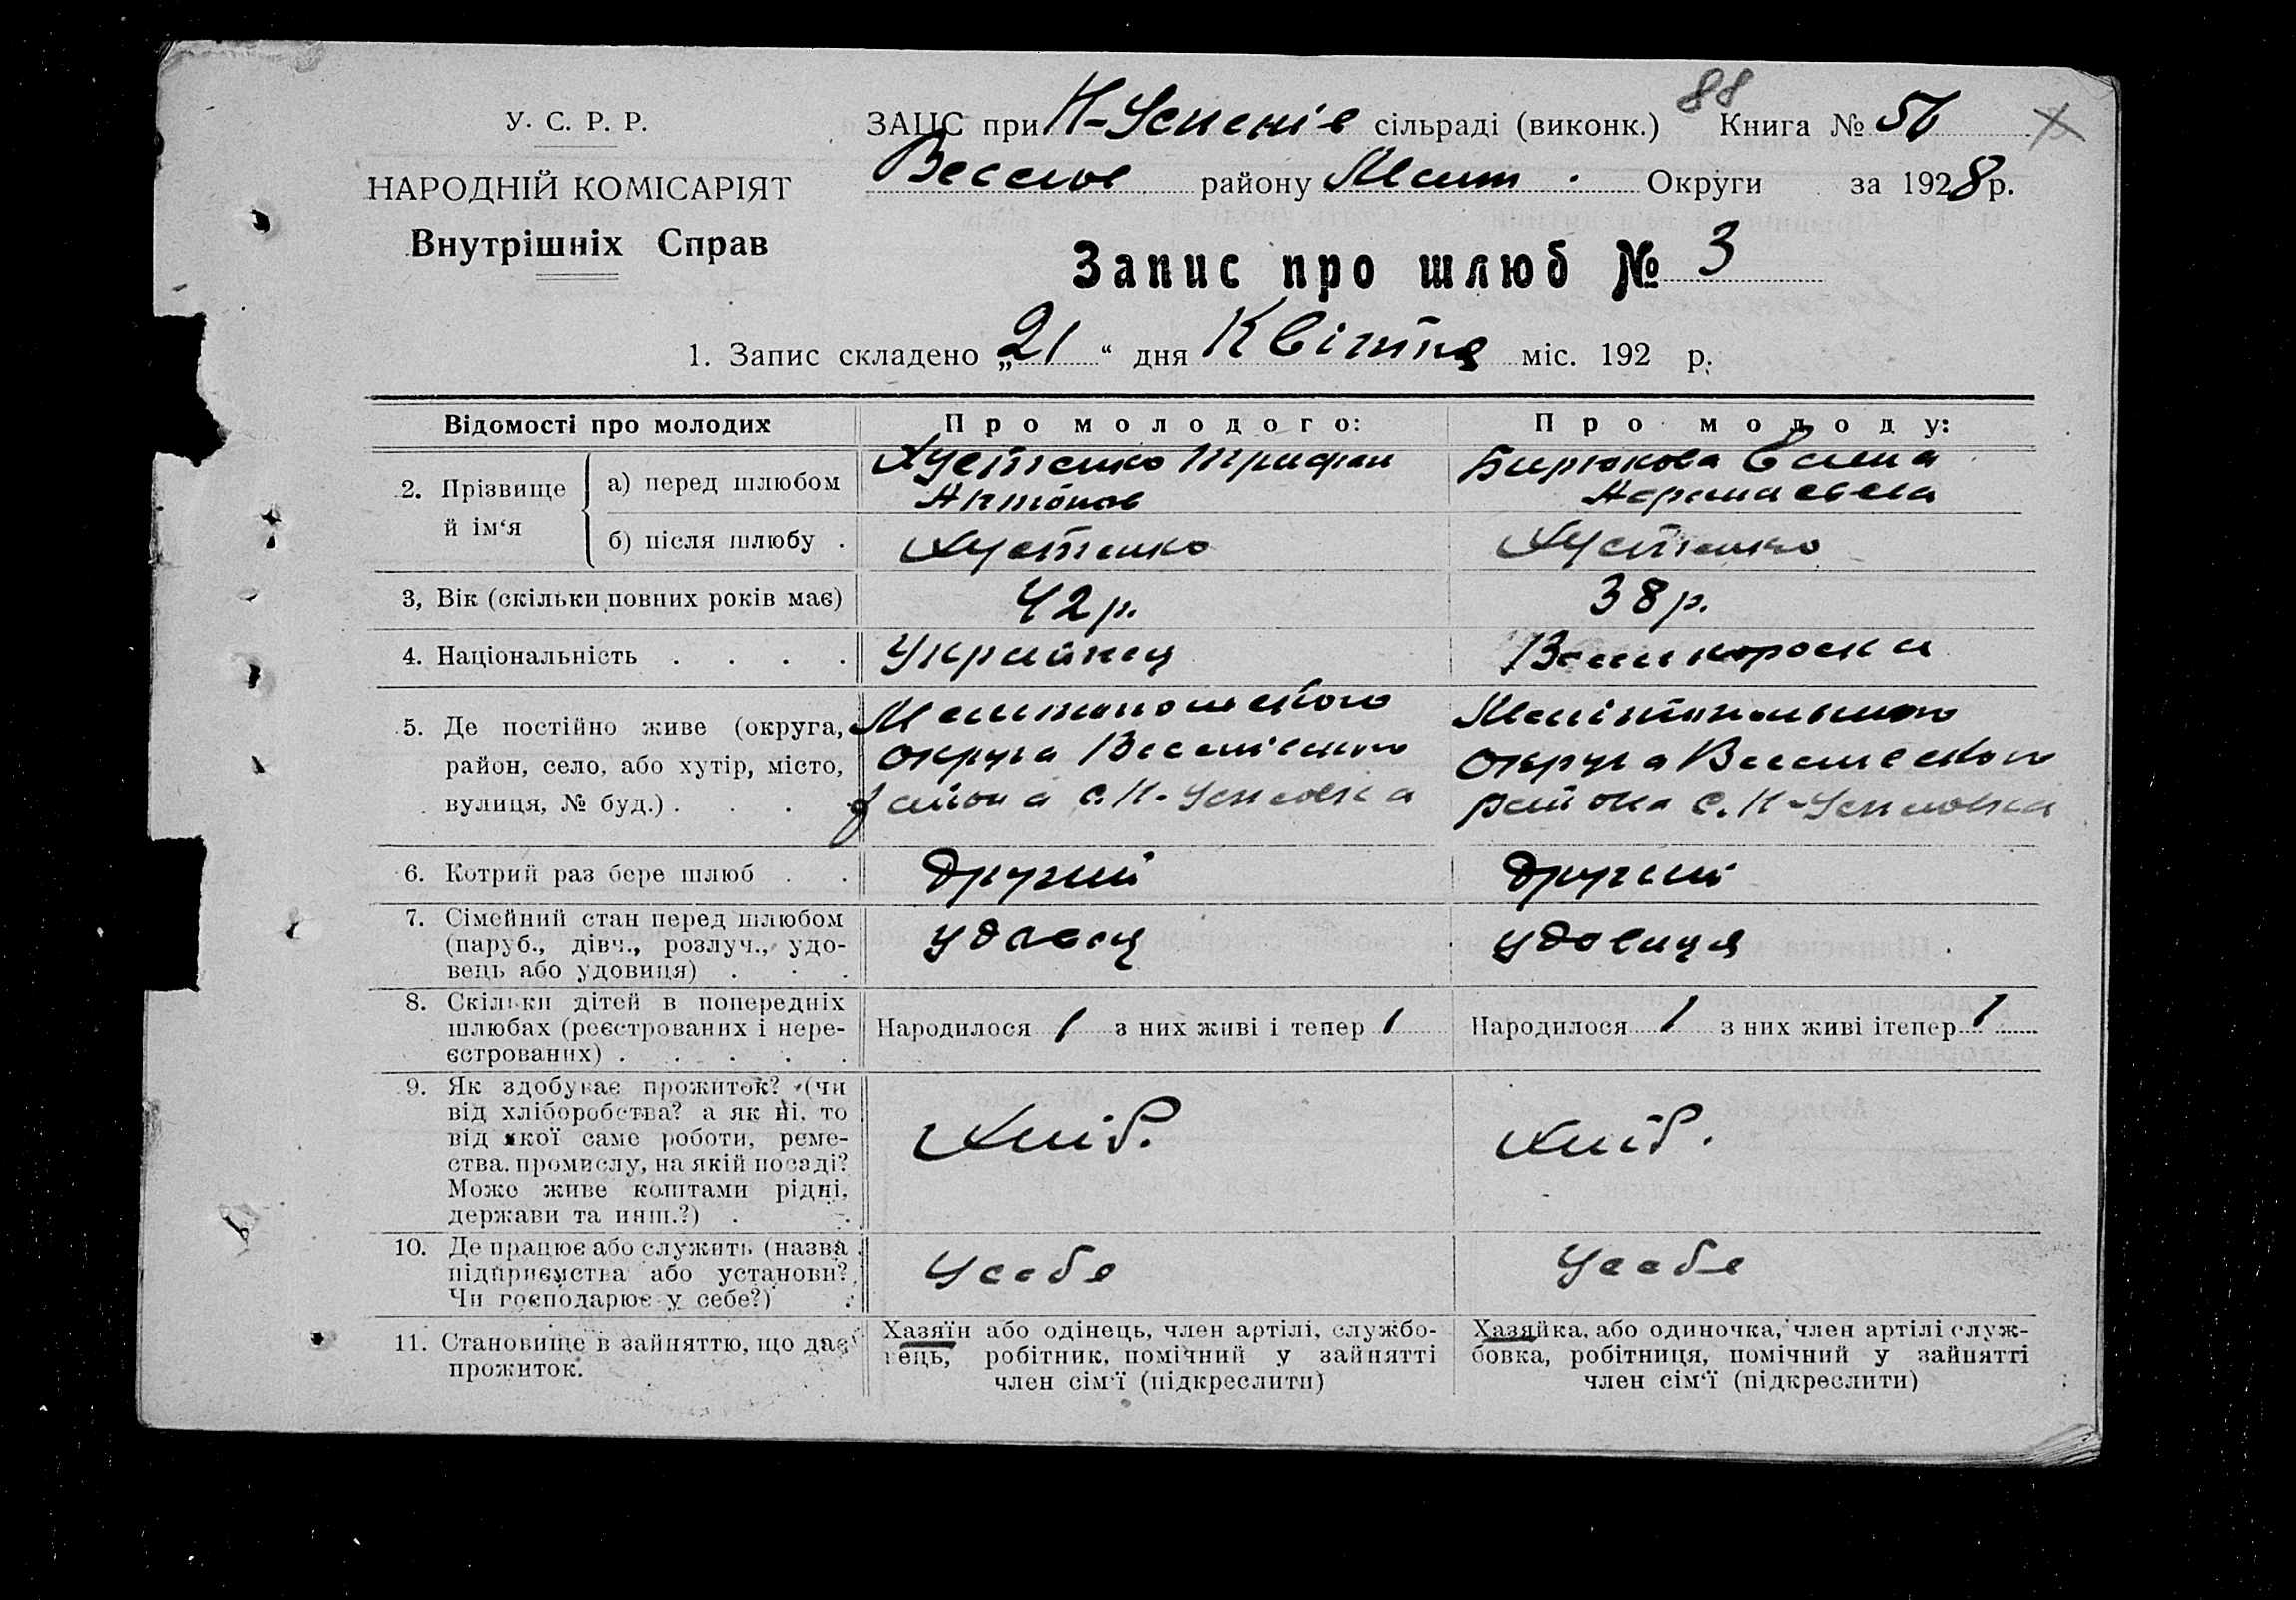 88
У. С. Р. Р.
НАРОДНІЙ КОМІСАРІЯТ
Внутрішніх Справ
ЗАЦС при Н-Успенів сільраді (виконк.) Книга № 56
Весело району Меліт. Округи за 1928 р.
Запис про шлюб № 3
1. Запис складено „21“ дня Квітня міс. 192 р.
Відомості про молодих
Про молодого:
Про молоду:
2. Прізвище й ім‘я
а) перед шлюбом
Хустенко Трифан
Антонов
Бирюкова
б) після шлюбу .
Хустенко
Хустенко
3, Вік (скільки повних років має)
42 р.
38 р.
4. Національність . . . .
Українец
Великороска
5. Де постійно живе (округа,
район, село, або хутір, місто,
вулиця, № буд.) . . .
Мелитопольского
округа Веселівского
района с. Н-Успеновка
Мелітопольского
округа Веселовского
района с. Н-Успеновка
6. Котрий раз бере шлюб . .
другий
другий
7. Сімейний стан перед шлюбом
(паруб., дівч., розлуч., удо-
вець або удовиця) . . .
удовец
удовиця
8. Скільки дітей в попередніх
шлюбах (реєстрованих і нере-
єстрованих) . . . . .
Народилося 1 з них живі і тепер 1
Народилося 1 з них живі ітепер 1
9. Як здобуває прожиток? (чи
від хліборобства? а як ні, то
від якої саме роботи, реме-
ства, промислу, на якій посаді?
Може живе коштами рідні,
держави та инш.?) . .
Хліб.
Хліб.
10. Де працює або служить (назва
підприємства або установи?
Чи господарює у себе?) .
У себе
У себе
11. Становище в зайняттю, що дає
прожиток.
Хазяїн або одінець, член артілі, службо-
вець, робітник, помічний у зайнятті
член сім‘ї (підкреслити)
Хазяйка, або одиночка, член артілі служ-
бовка, робітниця, помічний у зайнятті
член сім‘ї (підкреслити)